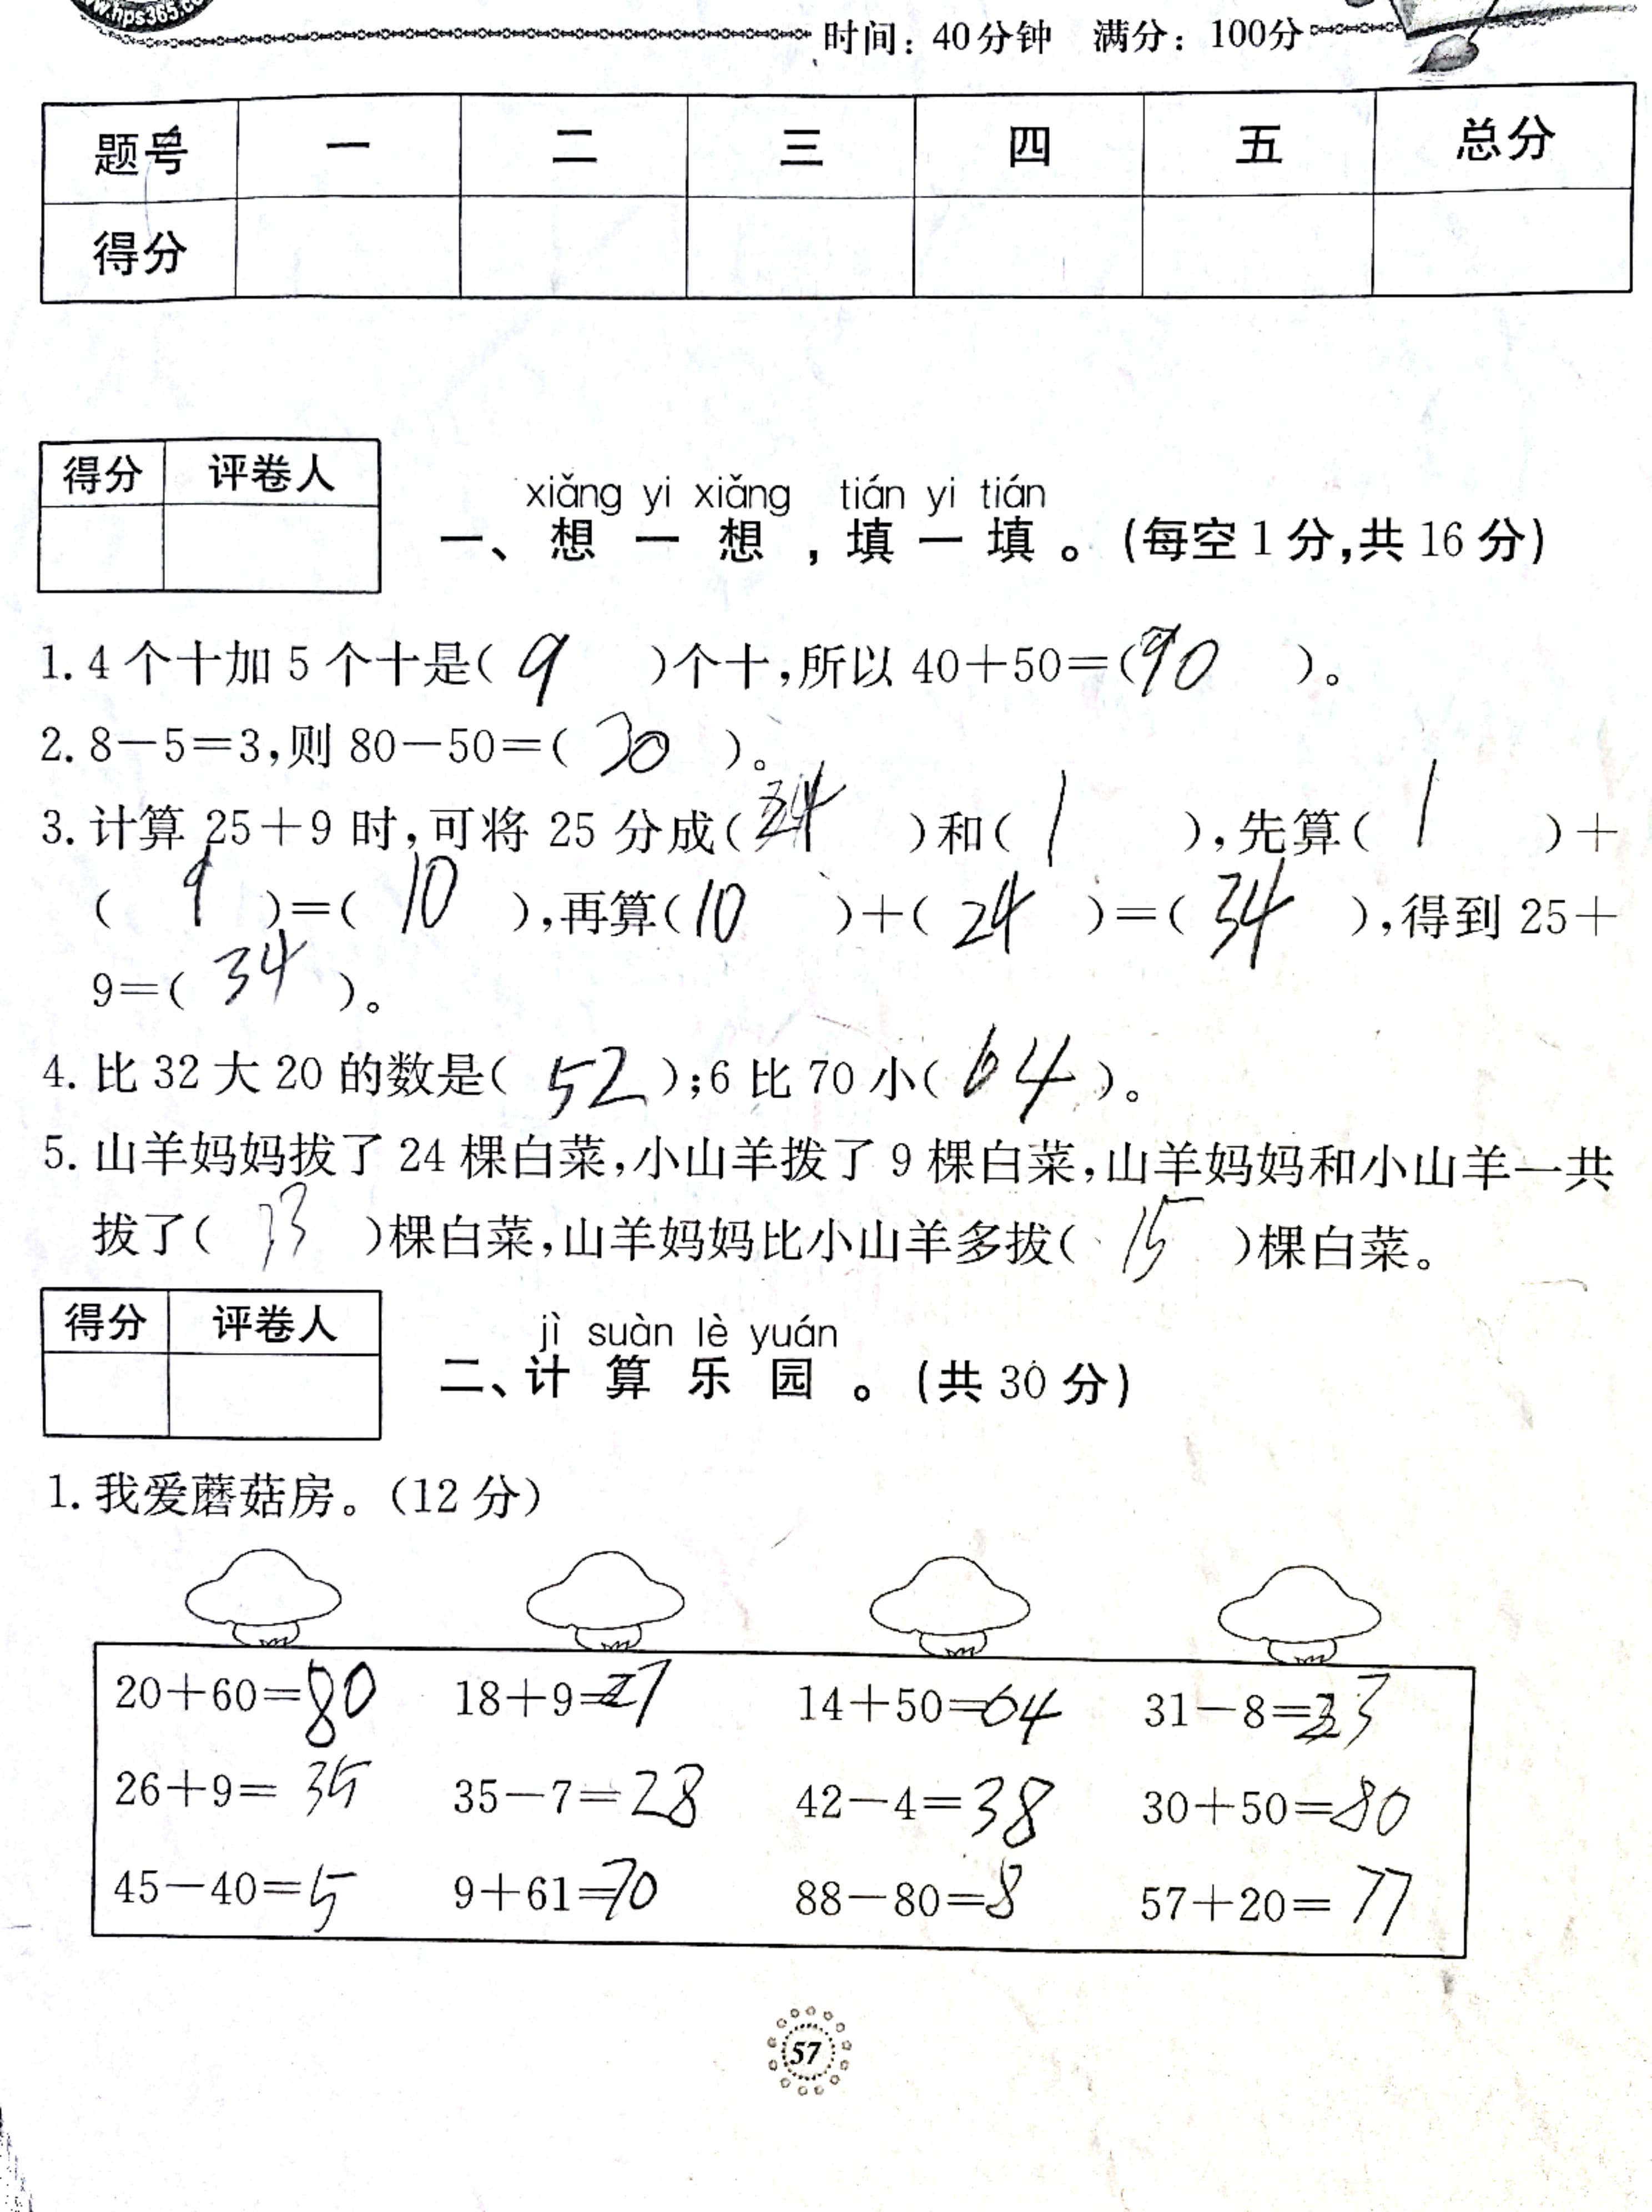 www.hps365.co
时间：40分钟 满分：100分
题号 一 二 三 四 五 总分
得分
得分 评卷人
xiǎng yi xiǎng tián yi tián
一、想一想，填一填。(每空1分,共16分)
1. 4个十加5个十是( 9 )个十,所以40+50=(90 )。
2. 8-5=3,则80-50=( 30 )。
3. 计算25+9时,可将25分成(24 )和( 1 ),先算( 1 )+
( 9 )=( 10 ),再算(10 )+( 24 )=( 34 ),得到25+
9=( 34 )。
4. 比32大20的数是( 52 );6比70小( 64 )。
5. 山羊妈妈拔了24棵白菜,小山羊拨了9棵白菜,山羊妈妈和小山羊一共
拔了( 33 )棵白菜,山羊妈妈比小山羊多拔( 15 )棵白菜。
得分 评卷人
jì suàn lè yuán
二、计算乐园。(共30分)
1. 我爱蘑菇房。(12分)
20+60=80 18+9=27 14+50=64 31-8=23
26+9=35 35-7=28 42-4=38 30+50=80
45-40=5 9+61=70 88-80=8 57+20=77
57